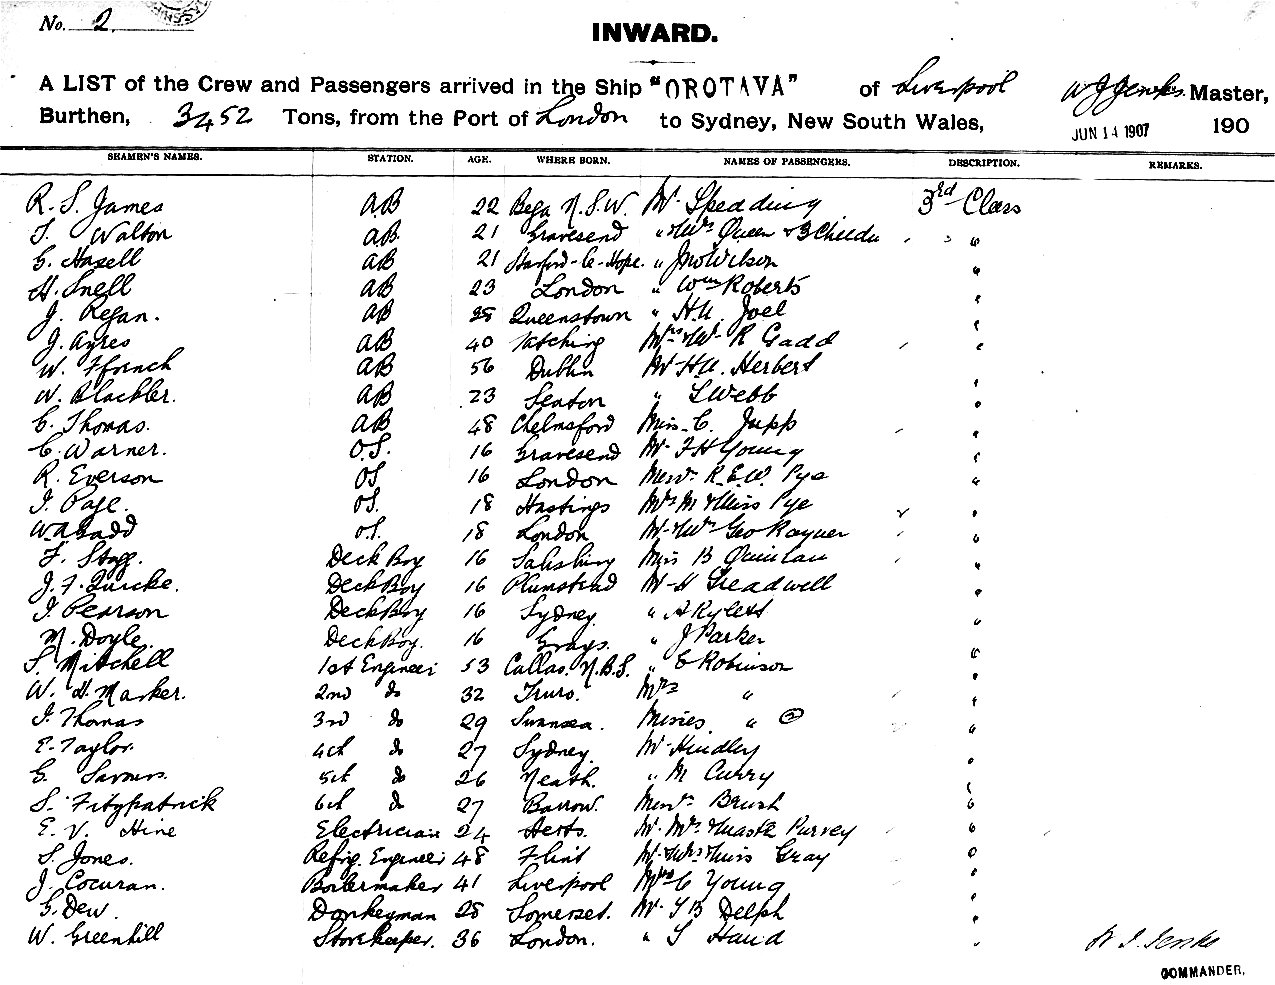 No. 2.
INWARD.
A LIST of the Crew and Passengers arrived in the Ship "OROTAVA" of Liverpool W J Jenks. Master,
Burthen, 3452 Tons, from the Port of London to Sydney, New South Wales, JUN 14 1907 190
SEAMEN'S NAMES. STATION. AGE. WHERE BORN. NAMES OF PASSENGERS. DESCRIPTION. REMARKS.
R. S. James AB 22 Bega N.S.W. Mr. Spedding 3rd Class
Walton AB 21 Gravesend " & Mrs Queen & 3 Childn "
Hasell AB 21 Stanford-le-Hope. " Jno Wilson "
H. Snell AB 23 London " Wm Roberts "
J. Regan. AB Queenstown " H.W. Joel "
J. Ayres AB 40 Mr & Mrs R Gadd "
W. Ffrench AB 56 Dublin Mr H.W. Herbert "
W. Blackler. AB 23 Seaton " Webb "
C. Thomas. AB 48 Chelmsford Miss C. Jupp "
C. Warner. O.S. 16 Gravesend Mr. F H Young "
R. Everson OS 16 London R.E.W. Pye "
Page. OS. 18 Hastings Mrs M & Miss Pye "
W A Gadd OS. 18 London Mr & Mrs Geo Rayner "
F. Stagg. Deck Boy 16 Salisbury Miss B Quinlan "
J. F. Quirke. Deck Boy 16 Plumstead Mr H Treadwell "
Pearson Deck Boy 16 Sydney " A Ryless "
M. Doyle. Deck Boy. 16 Grays. " J Parker "
Mitchell 1st Engineer 53 Callao. N.B.S. " E Robinson "
W. H. Marker. 2nd do 32 Truro. Mrs " "
Thomas 3rd do 29 Swansea. Misses " (2) "
E. Taylor. 4th do 27 Sydney. Mr Hindley "
5th do 26 Neath. " M Curry "
S. Fitzpatrick 6th do 27 Barrow. Brush "
E. V. Hine Electrician 24 Herts. Mr. Mrs & Mastr Purvey "
Jones. Refrig. Engineer 48 Flint Mr. & Mrs & Miss Gray "
J. Cocuran. Boilermaker 41 Liverpool Mrs C Young "
G. Dew. Donkeyman 28 Somerset. Mr. Delph "
W. Greenhill Storekeeper. 36 London. " Hand "
W. J. Jenks
COMMANDER.